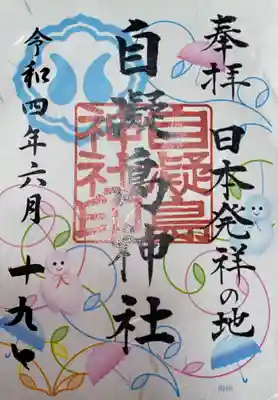 奉拝
日本発祥の地
自凝島神社
自凝島
神社印
令和四年六月
十九日